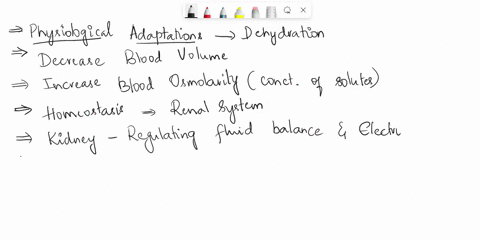 ⇒ Physiological Adaptations → Dehydration
⇒ Decrease Blood Volume
⇒ Increase Blood Osmolarity (conct. of solutes)
⇒ Homeostasis ⇒ Renal System
⇒ Kidney – Regulating fluid balance & Electr